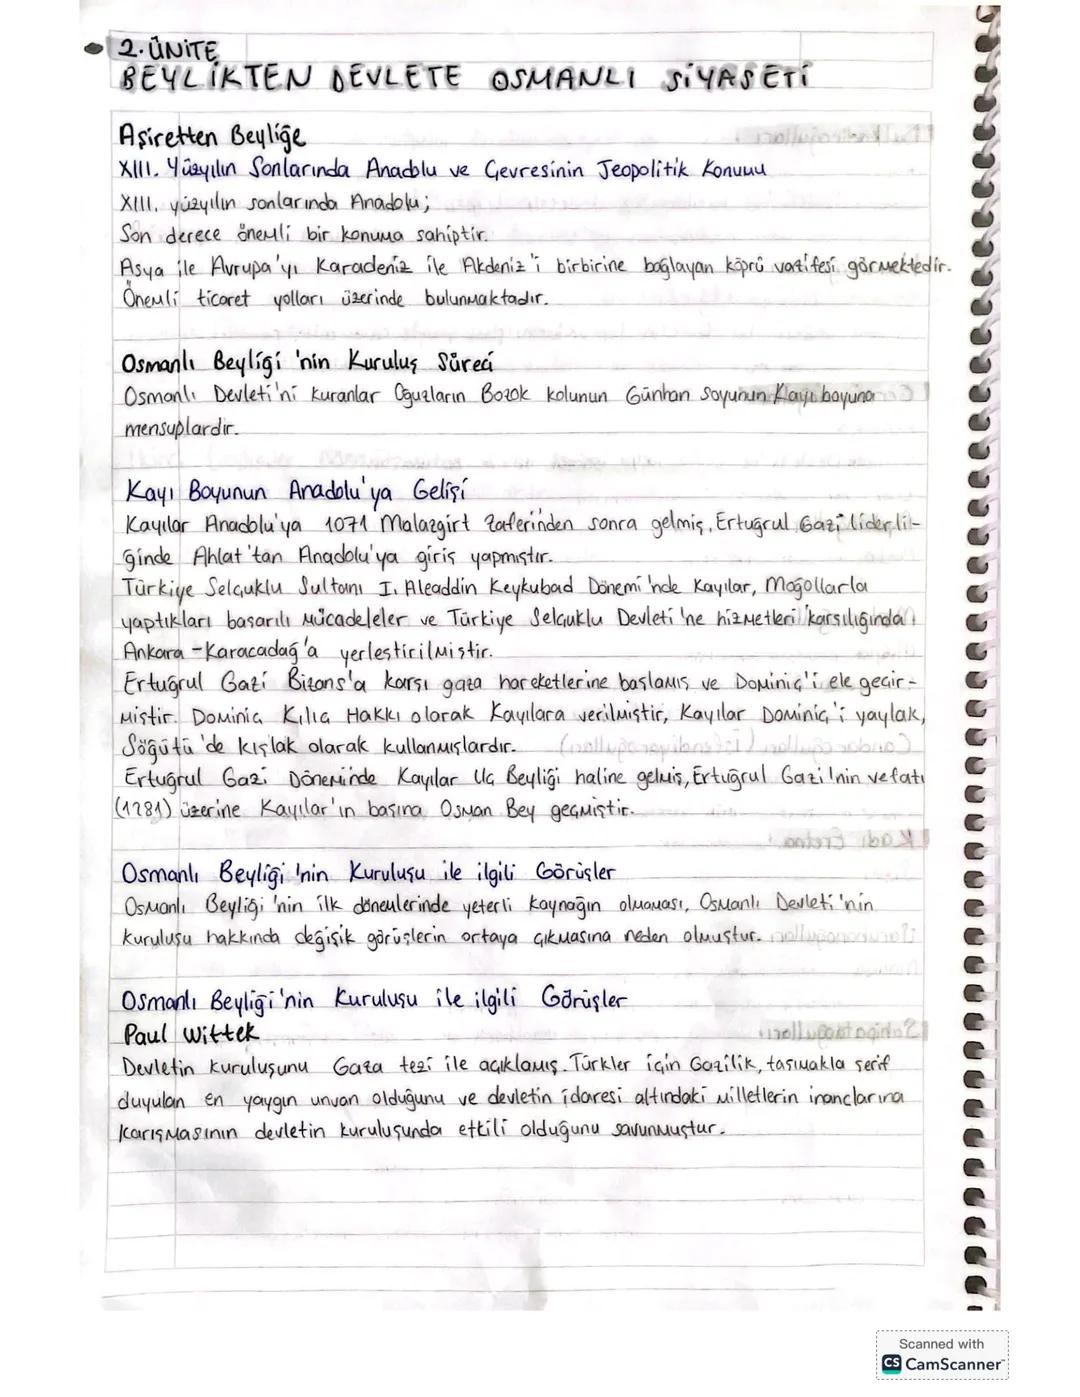 2. ÜNİTE
BEYLİKTEN DEVLETE OSMANLI SİYASETİ
Aşiretten Beyliğe
XIII. Yüzyılın Sonlarında Anadolu ve Çevresinin Jeopolitik Konumu
XIII. yüzyılın sonlarında Anadolu;
Son derece önemli bir konuma sahiptir.
Asya ile Avrupa'yı Karadeniz ile Akdeniz'i birbirine bağlayan köprü vazifesi görmektedir.
Önemli ticaret yolları üzerinde bulunmaktadır.
Osmanlı Beyliği'nin Kuruluş Süreci
Osmanlı Devleti'ni kuranlar Oğuzların Bozok kolunun Günhan soyunun Kayı boyuna
mensuplardır.
Kayı Boyunun Anadolu'ya Gelişi
Kayılar Anadolu'ya 1071 Malazgirt Zaferinden sonra gelmiş, Ertuğrul Gazi liderli-
ğinde Ahlat'tan Anadolu'ya giriş yapmıştır.
Türkiye Selçuklu Sultanı I. Aleaddin Keykubad Dönemi'nde Kayılar, Moğollarla
yaptıkları başarılı mücadeleler ve Türkiye Selçuklu Devleti'ne hizmetleri karşılığında
Ankara-Karacadağ'a yerleştirilmiştir.
Ertuğrul Gazi Bizans'a karşı gaza hareketlerine başlamış ve Dominiç'i ele geçir-
miştir. Dominiç Kılıç Hakkı olarak Kayılara verilmiştir, Kayılar Dominiç'i yaylak,
Söğütü'de kışlak olarak kullanmışlardır.
Ertuğrul Gazi Döneminde Kayılar Uç Beyliği haline gelmiş, Ertuğrul Gazi'nin vefatı
(1281) üzerine Kayılar'ın başına Osman Bey geçmiştir.
Osmanlı Beyliği'nin Kuruluşu ile ilgili Görüşler
Osmanlı Beyliği'nin ilk dönemlerinde yeterli kaynağın olmaması, Osmanlı Devleti'nin
kuruluşu hakkında değişik görüşlerin ortaya çıkmasına neden olmuştur.
Osmanlı Beyliği'nin Kuruluşu ile ilgili Görüşler
Paul Wittek
Devletin kuruluşunu Gaza tezi ile açıklamış. Türkler için Gazilik, taşımakla şerif
duyulan en yaygın unvan olduğunu ve devletin idaresi altındaki milletlerin inançlarına
karışmasının devletin kuruluşunda etkili olduğunu savunmuştur.
Scanned with
CS CamScanner